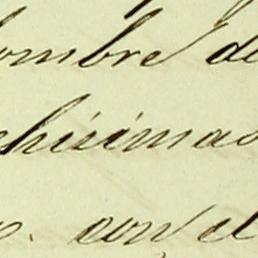 ombre de
chisimas
o. con el